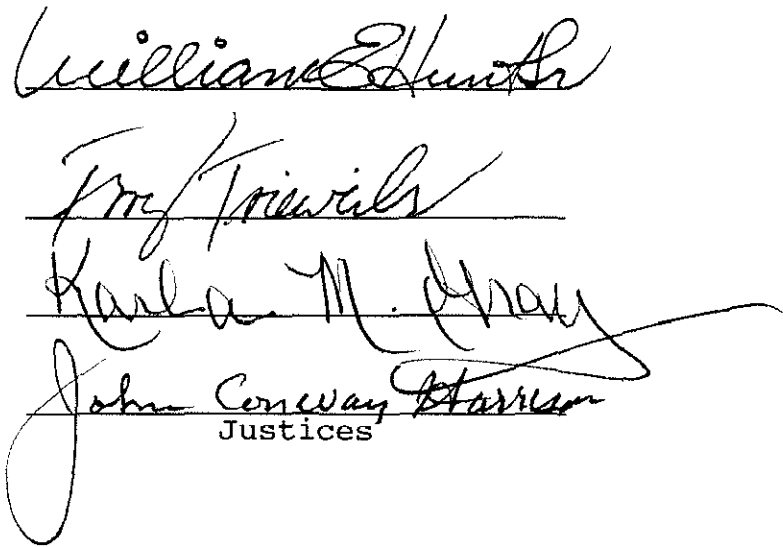 William E Hunt Sr
Terry Trieweiler
Karla M. Gray
John Conway Harrison
Justices